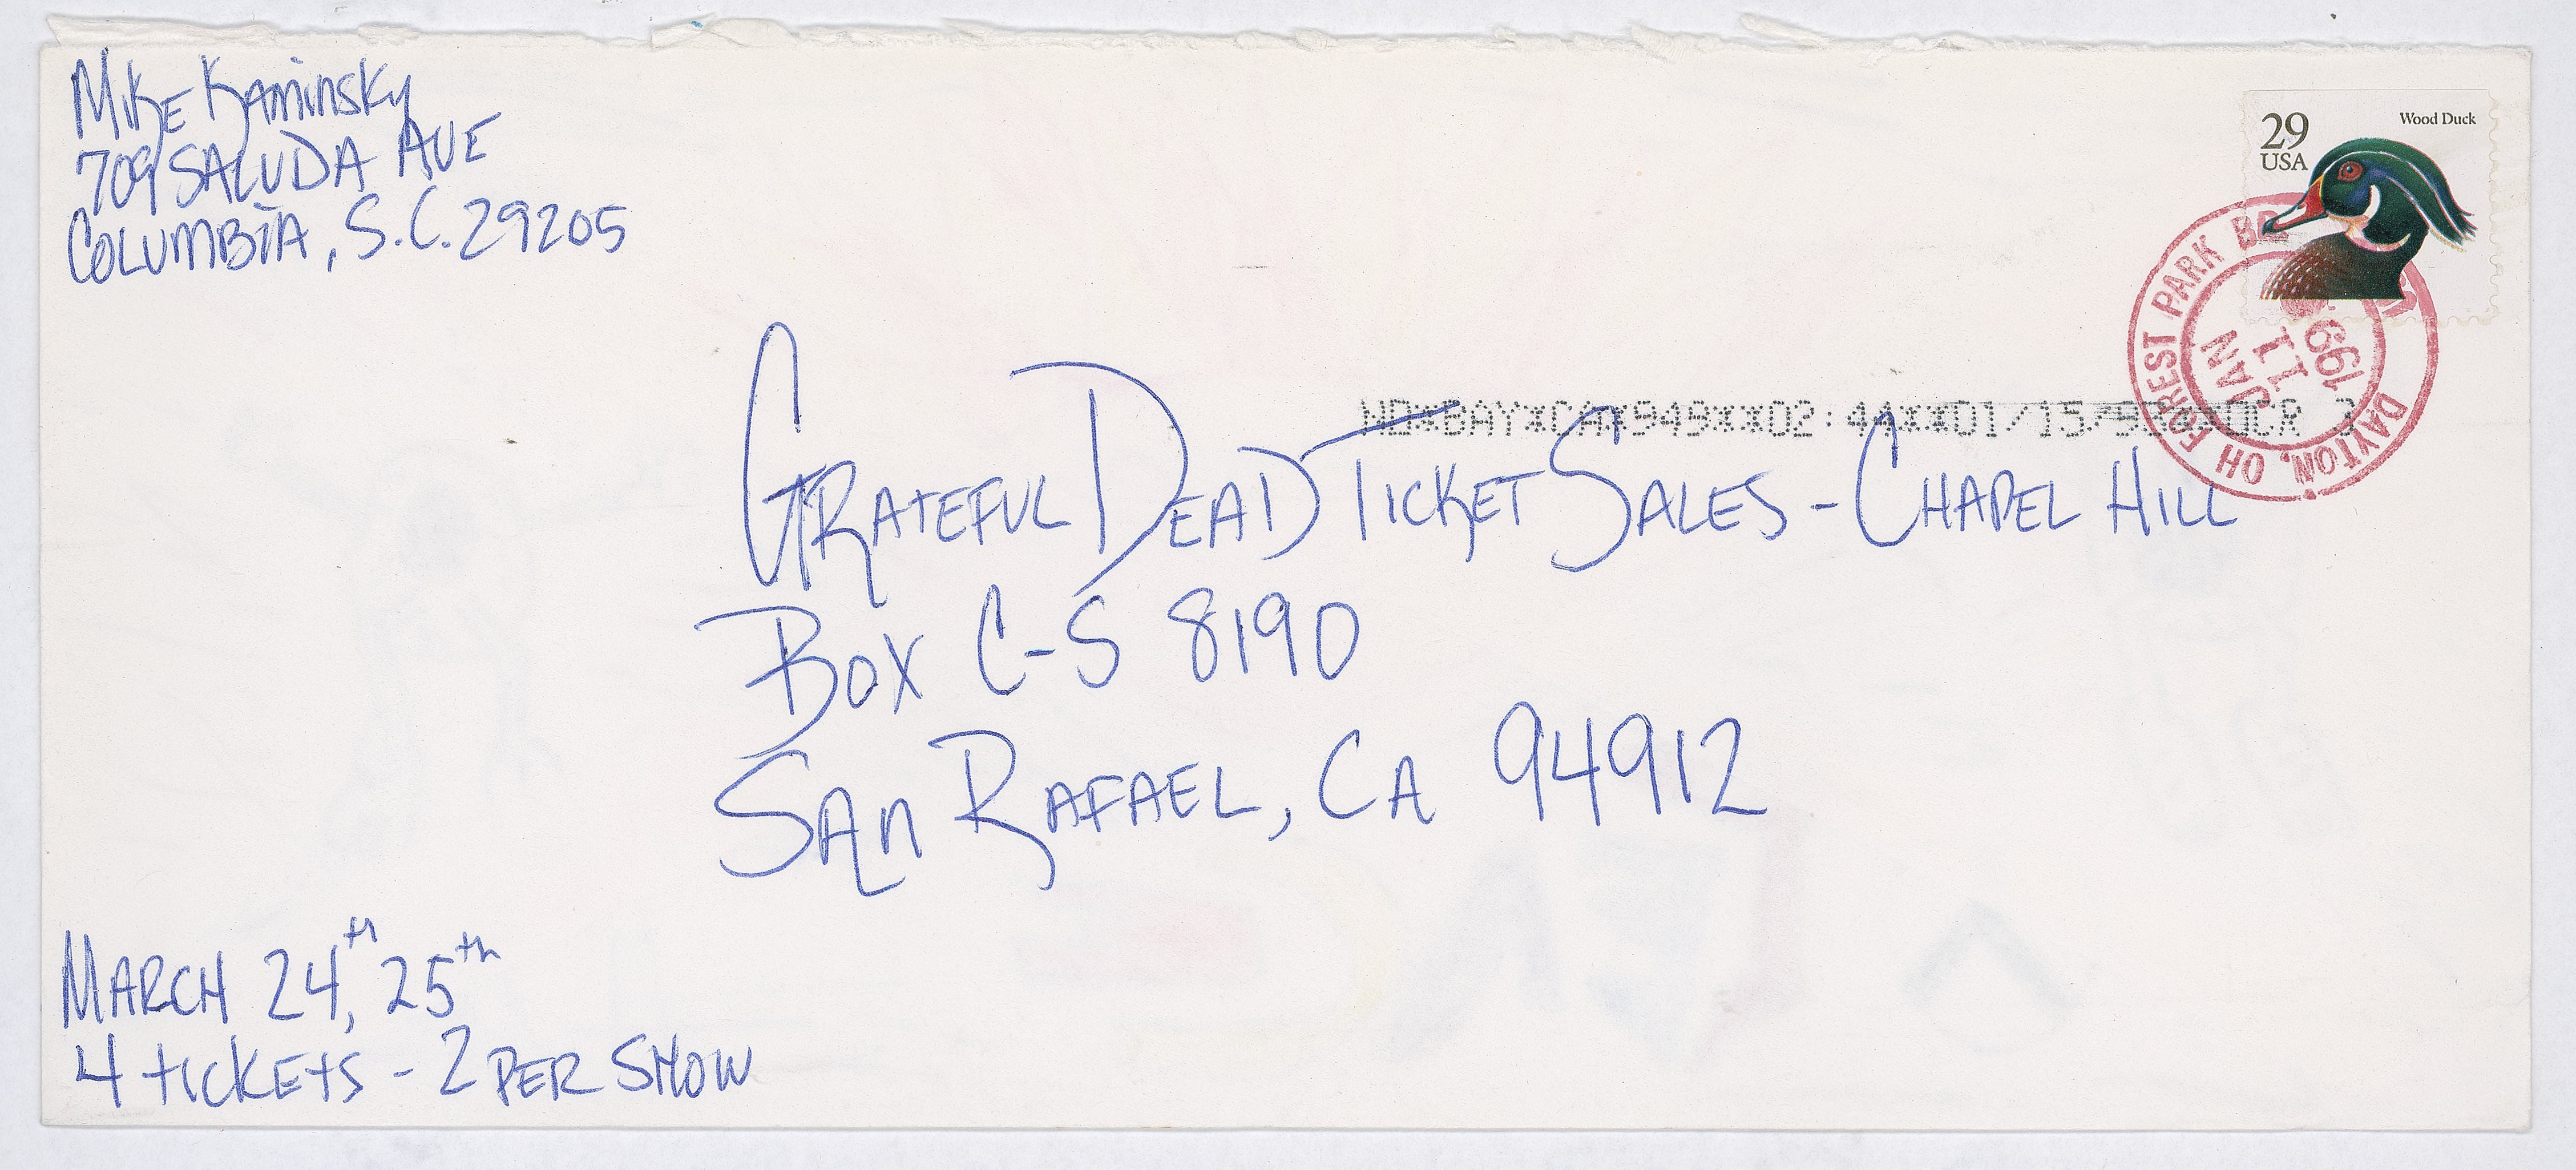 Mike Kaminsky
709 SALUDA AVE
COLUMBIA, S.C. 29205
29
USA
Wood Duck
FOREST PARK
DAYTON, OH
JAN
11
199
*BAY*CA*949**02:44**01/15/93**OCR
GRATEFUL DEAD TICKET SALES - CHAPEL HILL
BOX C-S 8190
SAN RAFAEL, CA 94912
MARCH 24th, 25th
4 tickets - 2 PER SHOW